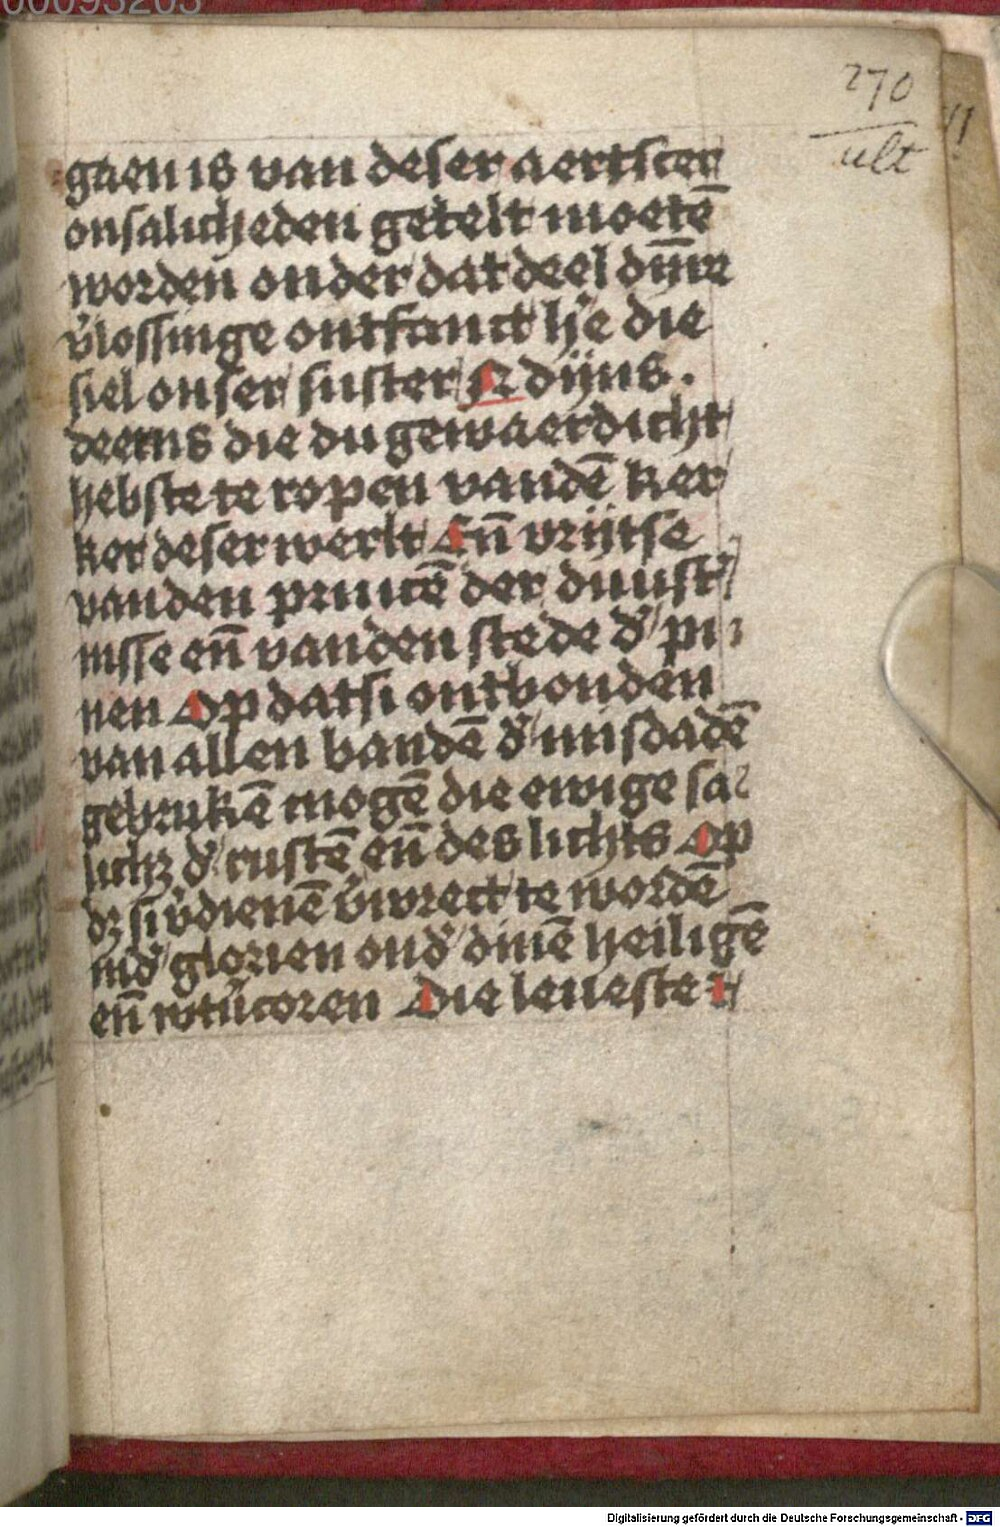 00093203
270
ult
gaen is van deser aertscer
onsalicheden getelt moetē
worden onder dat deel dijnre
v̄lossinge ontfanct hē die
siel onser suster N dijns.
deerns die du gewaerdicht
hebste te ropen vandē ker
ker deser werlt En̄ vrijtse
vanden princē der duust
nisse en̄ vanden stede d' pi
nen Op dat si ontbonden
van allen bandē d' misdadē
gebrukē mogē die ewige sa
lichz d' rustē en̄ des lichts Op
dz si v̄dienē v̄wrect te wordē
ind' glorien ond' dinē heiligē
en̄ wtūcoren Die leueste t
Digitalisierung gefördert durch die Deutsche Forschungsgemeinschaft - DFG